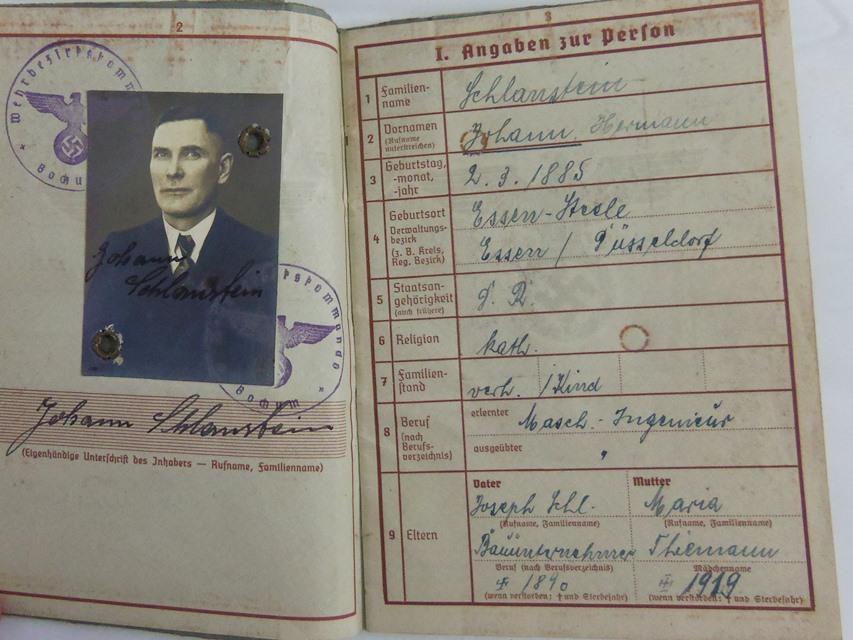 2
Wehrbezirkskommando
* Bochum *
Johann
Schlanstein
Bochum *
Johann Schlanstein
(Eigenhändige Unterschrift des Inhabers — Rufname, Familienname)
3
I. Angaben zur Person
1 Familien-
name
Schlanstein
2 Vornamen
(Rufname
unterstreichen)
Johann, Hermann
3 Geburtstag,
-monat,
-jahr
2. 3. 1885
4 Geburtsort
Verwaltungs-
bezirk
(z. B. Kreis,
Reg. Bezirk)
Essen-Steele
Essen / Düsseldorf
5 Staatsan-
gehörigkeit
(auch frühere)
D. R.
6 Religion
kath.
7 Familien-
stand
verh. 1 Kind
8 Beruf
(nach
Berufs-
verzeichnis)
erlernter Masch.-Ingenieur
ausgeübter "
9 Eltern
Vater
Joseph Schl.
(Rufname, Familienname)
Bauunternehmer
Beruf (nach Berufsverzeichnis)
† 1890
(wenn verstorben: † und Sterbejahr)
Mutter
Maria
(Rufname, Familienname)
Thiemann
Mädchenname
† 1919
(wenn verstorben: † und Sterbejahr)